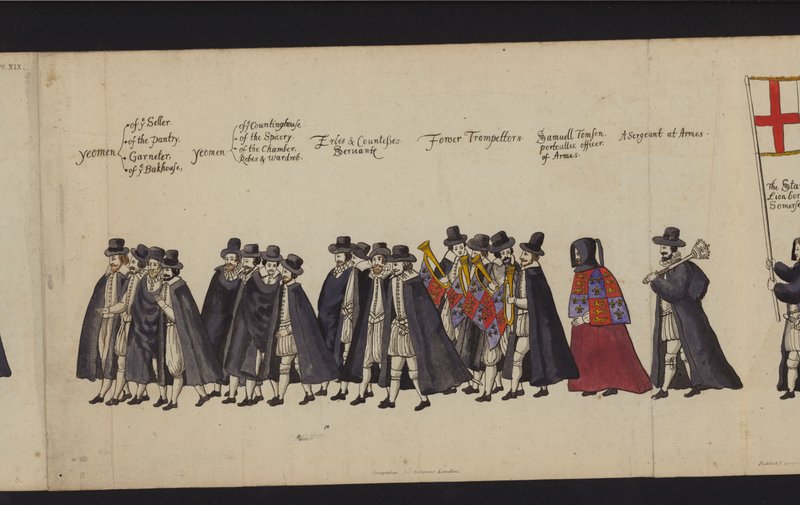 Pl. XIX.
yeomen
of yᵉ Seller.
of the pantry.
Garneter.
of yᵉ Bakhouse.
yeomen
of yᵉ Countinghouse.
of the Spicery.
of the Chamber.
Robes & Wardreb.
Erles & Countesses
Servante
Fower Trompettors.
Samuell Tomson
portcullis officer
of Armes.
A Sergeant at Armes.
The Sta
Lion bor
Somerse
8.
9.
London
Publish'd